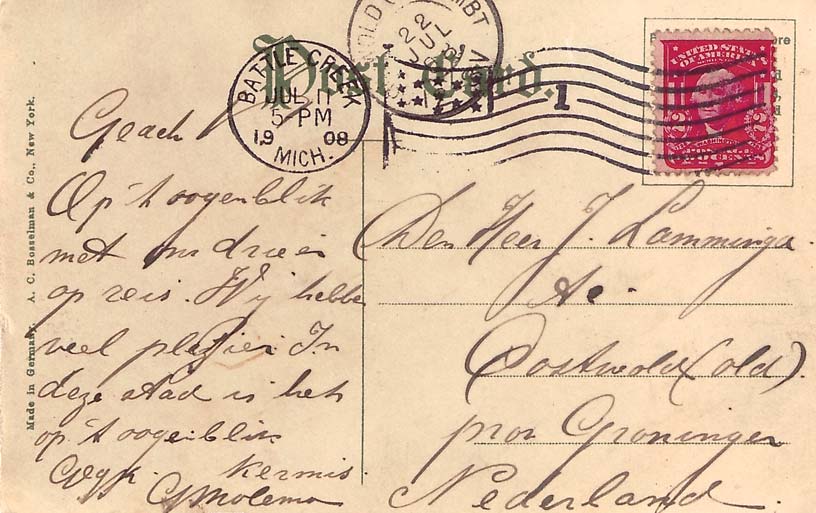 Post Card.
BATTLE CREEK
JUL 11
5 PM
19 08
MICH.
22
JUL
1
UNITED STATES
OF AMERICA
WASHINGTON
2 2
TWO CENTS
Made in Germany. A. C. Bosselman & Co., New York.
Geach
Op 't oogenblik
met ons drieën
op reis. Wij hebben
veel plezier. In
deze stad is het
op 't oogenblik
kermis.
G Molema
Den Heer J. Lamminga
Ae.
Oostwold (Old).
prov Groningen
Nederland.